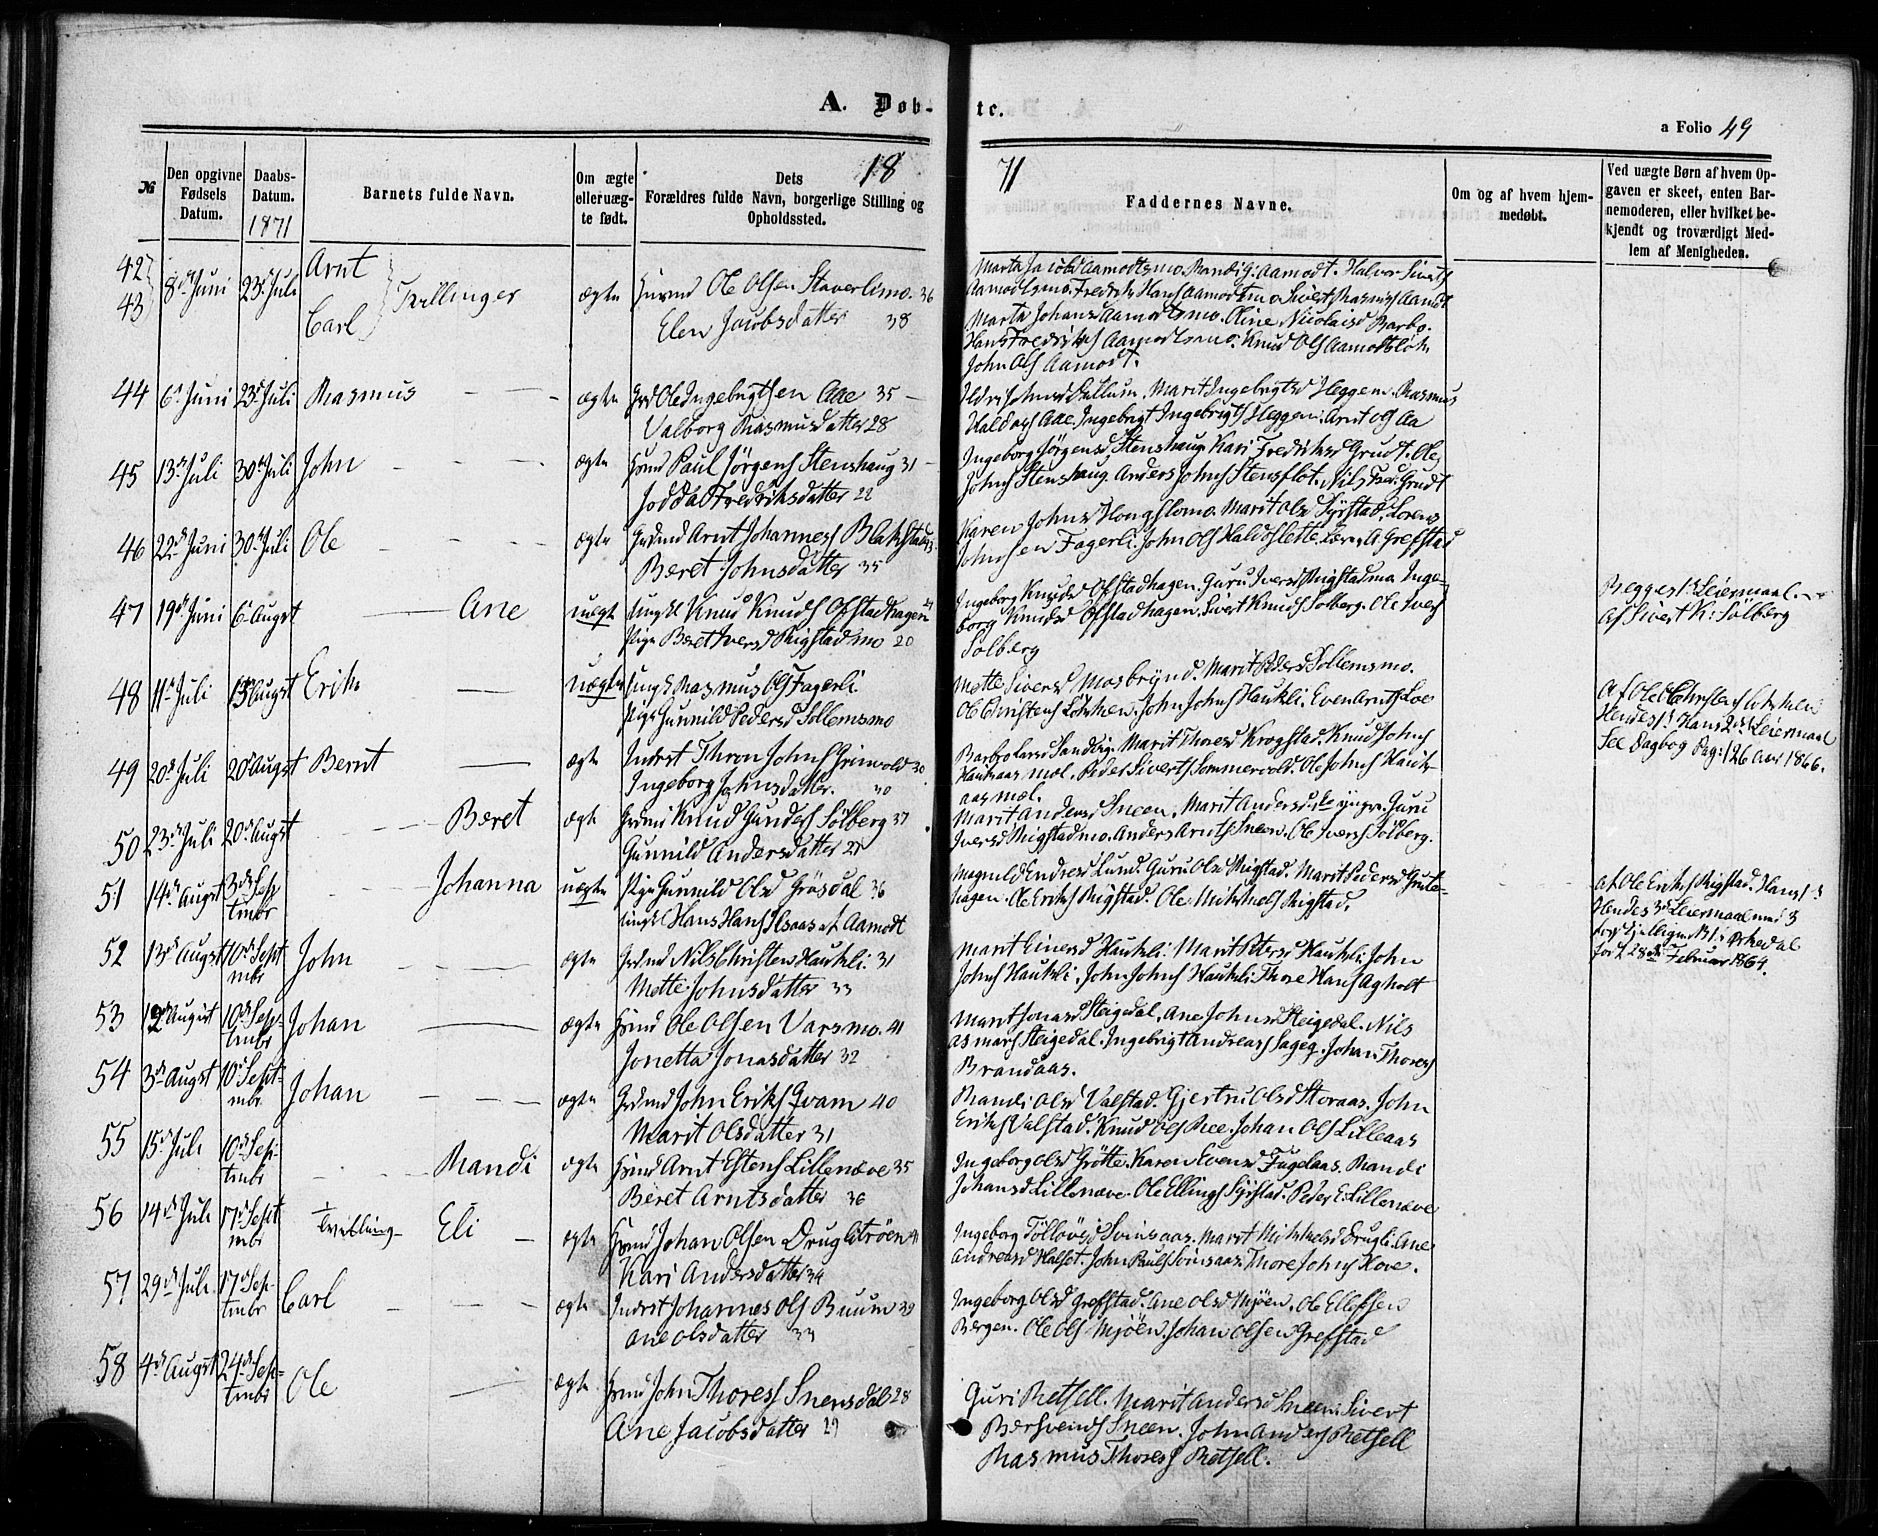 A. Døb-
te.
a Folio 49
№
Den opgivne Fødsels Datum.
Daabs-Datum.
1871
Barnets fulde Navn.
Om ægte eller uæg-te født.
18
Dets
Forældres fulde Navn, borgerlige Stilling og Opholdssted.
71
Faddernes Navne.
Om og af hvem hjem-medøbt.
Ved uægte Børn af hvem Op-gaven er skeet, enten Bar-nemoderen, eller hvilket be-kjendt og troværdigt Med-lem af Menigheden.
42 43 8de Juni 23de Juli Arnt Carl Tvillinger ægte Ole Olsen Staverlimo 36
Elen Jacobsdatter 38
Marta Jacobsd Aamodtsmo. Randi Aamodt. Halvor Siverts
Aamodtsmo. Fredrik Hans Aamodtmo Sivert Rasmus Aamodt
Marta Johansd Aamodtsmo. Oline Nicolaisd Barbo.
Hans Fredriks Aamodtsmo. Knud Ols Aamodt
John Ols Aamodt.
44 6te Juni 23de Juli Rasmus ægte Ole Ingebrigtsen Aae 35
Valborg Rasmusdatter 28
Marit Ingebrigtsd Heggem. Rasmus
Haldors Aae. Ingebrigt Ingebrigts Heggem. Arnt Ols Aa
45 13de Juli 30te Juli John ægte Paul Jørgens Stenshaug 31
Fredriksdatter 22
Ingeborg Jørgensd Stenshaug Kari Fredriksd Grudt. Ole
Johns Stenshaug Anders Johns Stensflot. Nils Fred. Grudt
46 22de Juni 30te Juli Ole ægte Arnt Johannes Blakstad
Beret Johnsdatter 35
Karen Johnsd Hongslomo. Marit Olsd Syrstad. Lorens
Johnsen Fagerli. John Ols Haldoslette. A Grefstad
47 19de Juni 6te Augst Ane uægte Ungkl Knud Knuds Ofstadhagen
Pige Beret Iversd Rigstadmo 20
Ingeborg Knudsd Ofstadhagen. Guru Iversd Rigstadmo Inge-
borg Knudsd Ofstadhagen. Sivert Knuds Solberg. Ole Ivers
Solberg
Begges 1ste Leiermaal.
Af Sivert K. Sølberg
48 11te Juli 13de Augst Erik uægte Ungkl Rasmus Ols Fagerli
Pige Gunnild Pedersd Sollemsmo
Mette Siversd Mosbrynd. Marit Pedersd Sollemsmo.
Ole Christens Løkken. John Johns Haukli. Even Arnts Loe
Af Ole Christens Løkken
Hendes 1ste Hans 2det Leiermaal
See Dagbog Pag. 126 1866.
49 20de Juli 20de Augst Bernt ægte Indrst Thron Johns Grinvold 30
Ingeborg Johnsdatter. 40
Barbro Larsd Sandvig. Marit Thoresd Krogstad. Knud Johns
mæl. Peder Siverts Sommervold. Ole Johns
aas mæl.
50 23de Juli 20de Augst Beret ægte Knud Gundes Sølberg 37
Gunnild Andersdatter 27
Marit Andersd Sneen, Marit Andersd yngr. Guru
Iversd Rigstadmo. Anders Arnts Sneen. Ole Ivers Sølberg.
51 14de Augst 3de Sep tmbr Johanna uægte Pige Gunnild Olsd Grøsdal 36
Ungkl Hans Hans Ilsaas af Aamodt
Magnild Endresd Lund. Guru Olsd Rigstad. Marit Pedersd
hagen. Ole Eriks Rigstad. Ole Mikkels Rigstad.
Af Ole Eriks Rigstad. Hans 1ste
Hendes 3de Leiermaal med 3
forskjellige. Orkedal
født 28de Februar 1864.
52 13de Augst 10de Sept mbr John ægte Nils Christens Haukli. 31
Mette Johnsdatter 33
Marit Einersd Haukli. Marit Petersd Haukli. John
Johns Haukli. John Johns Haukli. Thore Hans Agholt
53 12 August 10de Sep- tmbr Johan ægte Ole Olsen Varsmo. 41
Jonetta Jonasdatter 32
Marit Jonasd Steigedal. Ane Johnsd Steigedal. Nils
Asmars Steigedal. Ingebrigt Andreas. Johan Thoress
Brandaas.
54 3de Augst 10de Sept- mbr Johan ægte John Eriks Qvam 40
Marit Olsdatter 31
Randi Olsd Valstad. Gjertru Olsd Storaas. John
Eriks Valstad. Knud Ols Ree. Johan Ols Lilleaas
55 15de Juli 10de Sep- tmbr Randi ægte Arnt Estens Lillenæve 35
Beret Arntsdatter 36
Ingeborg Olsd Grøtte. Karen Evensd Fugelaas. Randi
Johansd Lillenæve. Ole Ellings Syrstad. Peder E. Lillenæve
56 14de Juli 17de Sept mbr Tvilling Eli ægte Johan Olsen Druglitrøen 41
Kari Andersdatter 34
Ingeborg Svinsaas. Marit Mikkelsd Drugli. Ane
Andreasd Halset. John Pauls Svinsaas. Thore Johns Hove.
57 29de Juli 17de Sep- tmbr Carl ægte Indrst Johannes Ols Buum 39
Ane Olsdatter 33
Ingeborg Olsd Grefstad. Ane Olsd Mjøen. Ole Ellefsen
Bergen. Ole Ols Mjøen. Johan Olsen Grefstad
58 4de Augst 24de Sep- tmbr Ole ægte John Thoress Snensdal 28
Ane Jacobsdatter 29
Guri Retsell. Marit Andersd Sneen. Sivert
Bersvends Sneen. John Anders Retsell
Rasmus Thoress Retsell.